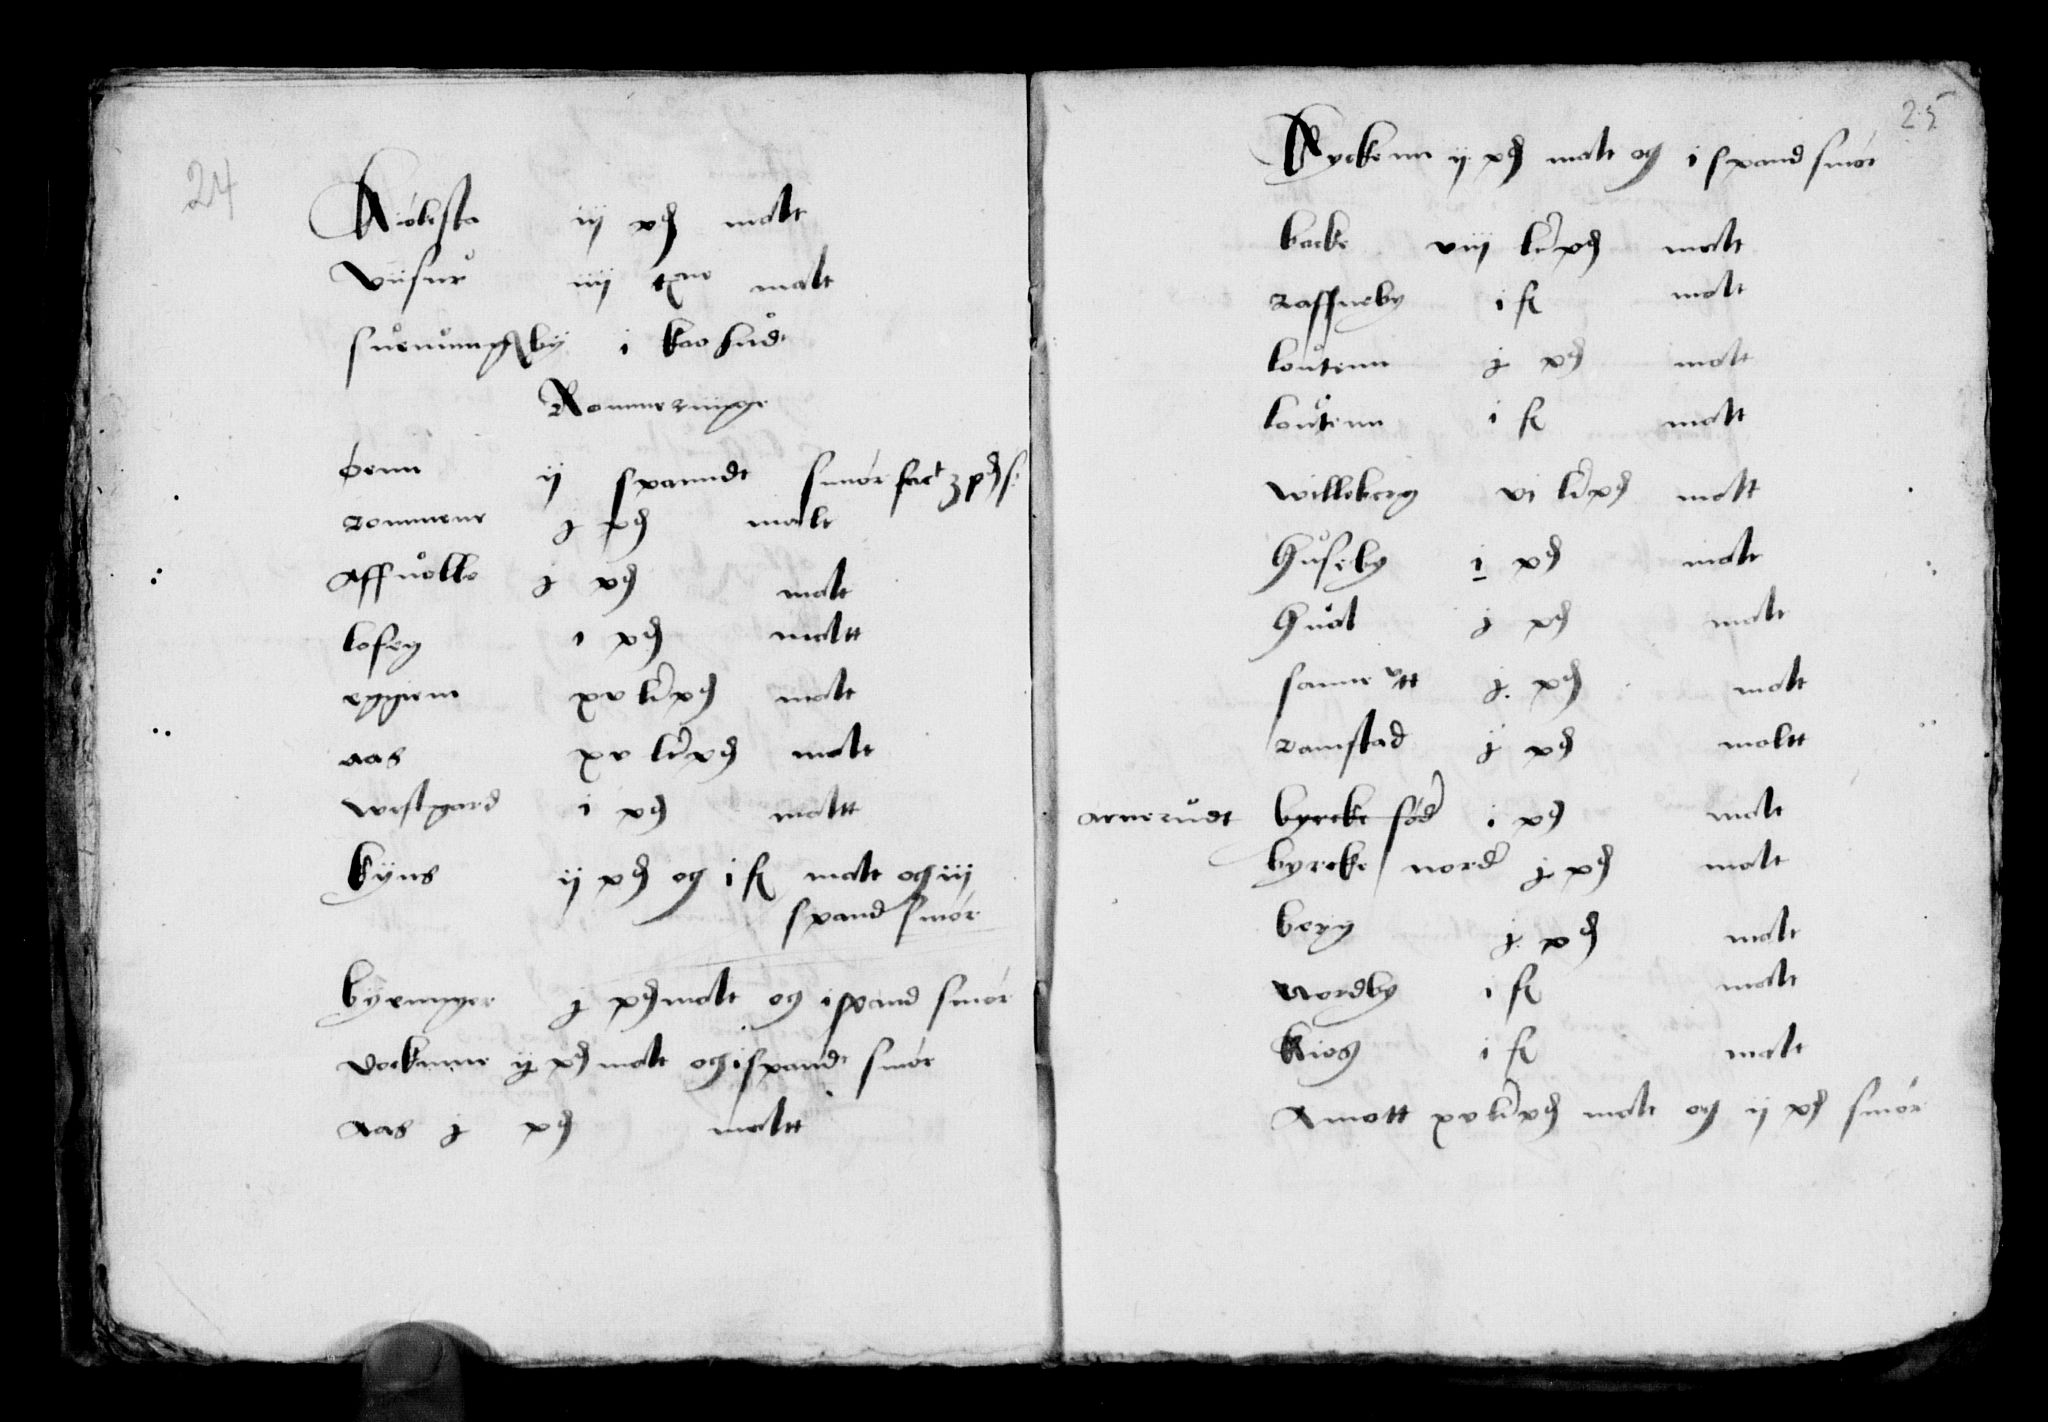 24
Kiølesta iij pd malt
Viisur iiij tne malt
suenungxby i koo hud
Rommeriige
øenn ij spanndt smør fact 3 pd s
rommene j pd malt
Affuelle j pd malt
lofey i pd maltt
eggiem xv lixpd malt
aas xv lixpd malt
westgard i pd maltt
Kyns ij pd og i sk malt og iij
spand smør
byrunger j pd malt og i spand smør
Dockunne ij pd malt og i spandt smør
Aas j pd maltt
25
Ryckenn ij pd malt og i spand smør
backe viij lixpd malt
raffneby i sk malt
loutenn j pd malt
loutenn i sk malt
willeberg vi lixpd malt
Huseby i pd malt
Hual j pd malt
sannertt j pd malt
ramstad j pd maltt
arnerudt byrcke sød i pd malt
byrcke nord j pd malt
berg j pd malt
Nordby i sk malt
Kios i sk malt
Amott xv lixpd malt og ij pd smør